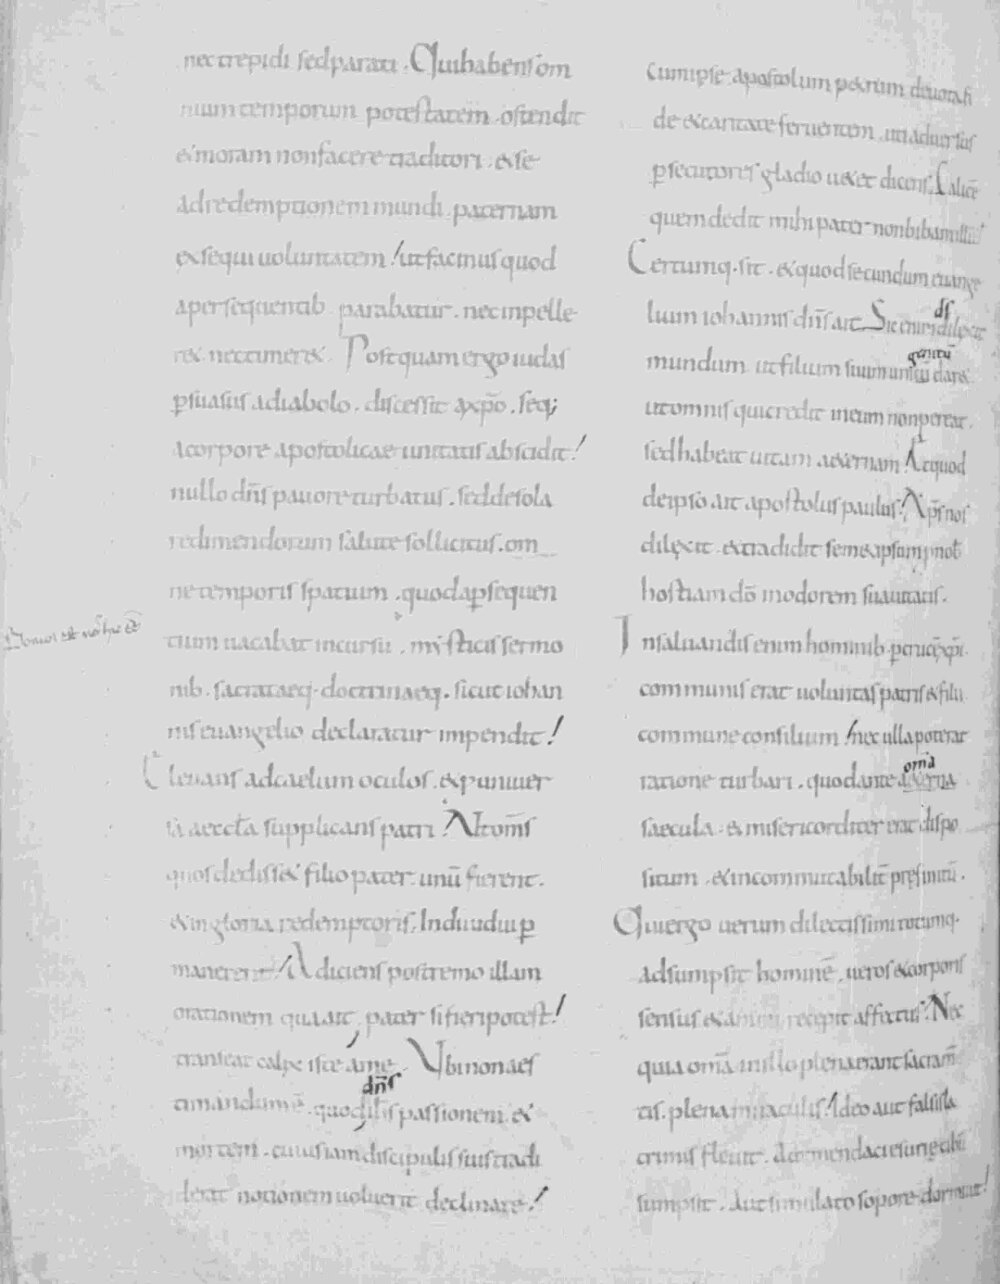 nec trepidi sed parati. Qui habens om
nium temporum potestatem. ostendit
et moram non facere traditori. et se
ad redemptionem mundi. paternam
exsequi uoluntatem! ut facinus quod
a persequentib. parabatur. nec inpelle
ret nec timeret. Postquam ergo iudas
psuasus a diabolo. discessit a xpo. seq;
a corpore apostolicae unitatis abscidit!
nullo dns pauore turbatus. sed de sola
redimendorum salute sollicitus. om
ne temporis spatium. quod a psequen
tium uacabat incursu. mysticis sermo
nib. sacrataeq. doctrinaeq. sicut iohan
nis euangelio declaratur impendit!
Eleuans ad caelum oculos. et p uniuer
sa aeccta supplicans patri. Ut oms
quos dedisset filio pater. unu fierent.
et in gloria redemptoris. Indiuidui p
manerent! Adiciens postremo illam
orationem qua ait, pater si fieri potest!
transeat calix iste a me. Ubi non aes
dns
timandum e. quod is passionem et
mortem. cuius iam discipulis suis tradi
derat notionem uoluerit declinare!
cum ipse apostolum petrum deuota fi
de et caritate feruentem. ut aduersus
psecutores gladio uexet dicens. Calice
quem dedit mihi pater non bibam illu!
Certumq. sit. et quod secundum euange
lium iohannis dns ait. Sic enim ds dilexit
genitu
mundum ut filium suum uni daret
ut omnis qui credit in eum non pereat.
sed habeat uitam aeternam. Et quod
de ipso ait apostolus paulus. Xps nos
dilexit. et tradidit semet ipsum p nob
hostiam do in odorem suauitatis.
In saluandis enim hominib. p cruce xpi.
communis erat uoluntas patris et filii
commune consilium! nec ulla poterat
orna
ratione turbari. quod ante aeterna
saecula. et misericorditer erat dispo
situm. et incommutabilit prefinitu.
Qui ergo uerum dilectissimi totumq.
adsumpsit homine. ueros et corporis
sensus et animi recepit affectus. Nec
quia oma in illo plena erant sacram
tis. plena miraculis! Ideo aut falsis la
crimis fleuit. aut mendaci esurie cibu
sumpsit. aut simulato sopore dormiuit!